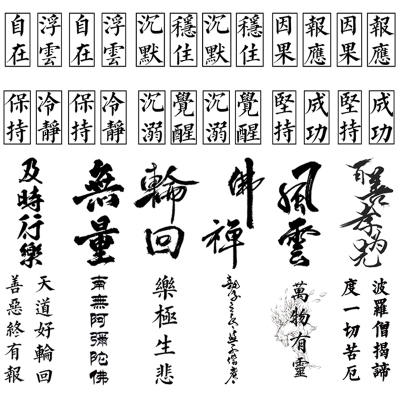 自在
浮雲
自在
浮雲
沉默
穩住
沉默
穩住
因果
報應
因果
報應
保持
冷靜
保持
冷靜
沉溺
覺醒
沉溺
覺醒
堅持
成功
堅持
成功
及時行樂
無量
輪回
佛禪
風雲
百善孝為先
天道好輪回
善惡終有報
南無阿彌陀佛
樂極生悲
萬物有靈
波羅僧揭諦
度一切苦厄